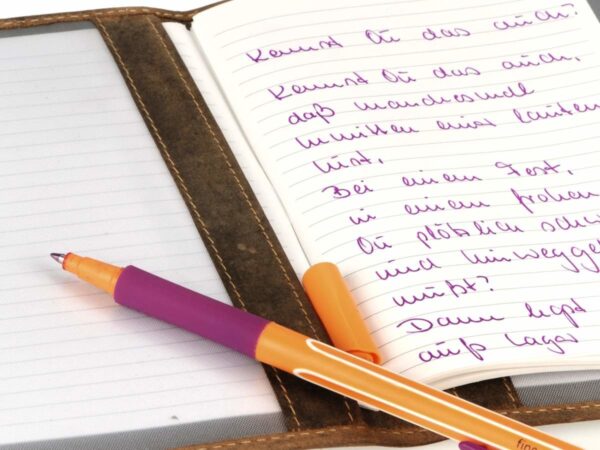 Kennst Du das auch?
Kennst Du das auch,
daß manchesmal
inmitten einer lauten
Lust,
Bei einem Fest,
in einem frohen
Du plötzlich schw
und hinwegge
mußt?
Dann legst
aufs Lager